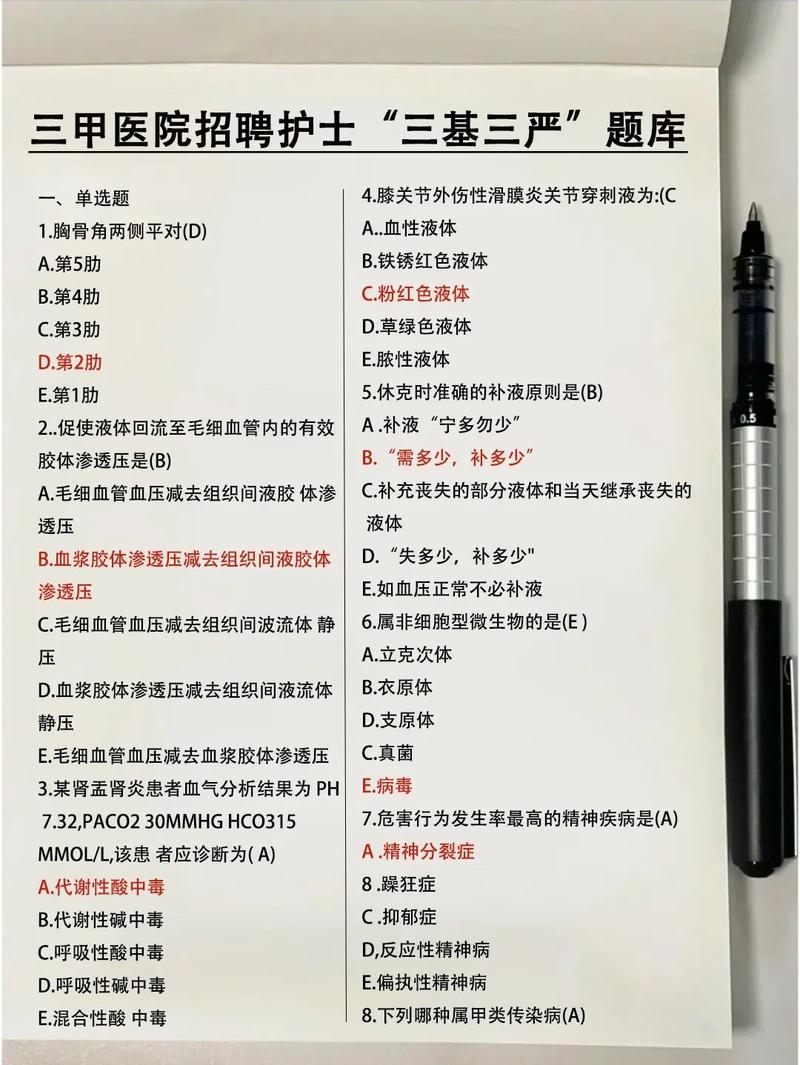 三甲医院招聘护士“三基三严”题库
一、单选题
1.胸骨角两侧平对(D)
A.第5肋
B.第4肋
C.第3肋
D.第2肋
E.第1肋
2..促使液体回流至毛细血管内的有效
胶体渗透压是(B)
A.毛细血管血压减去组织间液胶 体渗
透压
B.血浆胶体渗透压减去组织间液胶体
渗透压
C.毛细血管血压减去组织间波流体 静
压
D.血浆胶体渗透压减去组织间液流体
静压
E.毛细血管血压减去血浆胶体渗透压
3.某肾盂肾炎患者血气分析结果为 PH
7.32,PACO2 30MMHG HCO315
MMOL/L,该患 者应诊断为( A)
A.代谢性酸中毒
B.代谢性碱中毒
C.呼吸性酸中毒
D.呼吸性碱中毒
E.混合性酸 中毒
4.膝关节外伤性滑膜炎关节穿刺液为:(C
A..血性液体
B.铁锈红色液体
C.粉红色液体
D.草绿色液体
E.脓性液体
5.休克时准确的补液原则是(B)
A .补液“宁多勿少”
B.“需多少，补多少”
C.补充丧失的部分液体和当天继承丧失的
液体
D.“失多少，补多少"
E.如血压正常不必补液
6.属非细胞型微生物的是(E )
A.立克次体
B.衣原体
D.支原体
C.真菌
E.病毒
7.危害行为发生率最高的精神疾病是(A)
A .精神分裂症
8 .躁狂症
C .抑郁症
D,反应性精神病
E.偏执性精神病
8.下列哪种属甲类传染病(A)
0.5